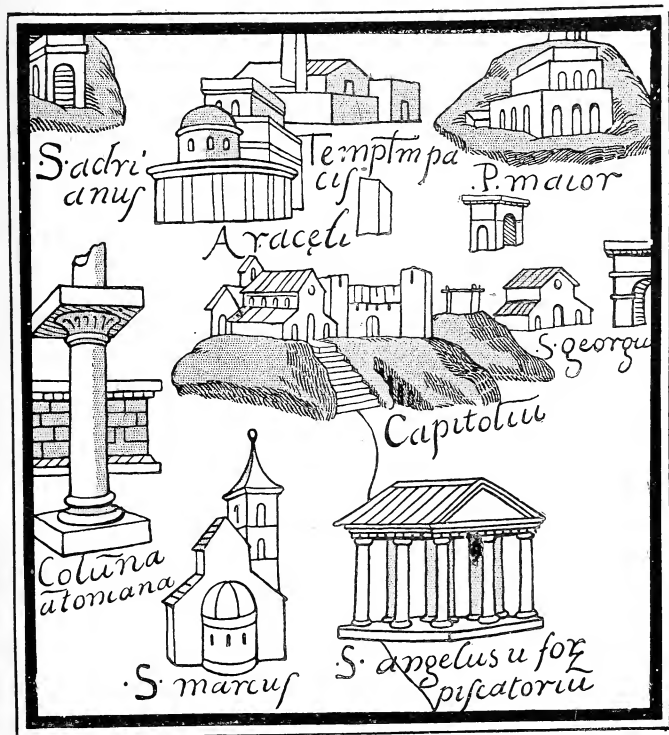 S. adri
anuſ
Templ̅m pa
cis
P. maior
Aracęli
S. georgii
Capitoliu̅
Colu̅na
a̅toniana
S. marcuſ
S. angelus ı̅ for
piſcatoriu̅